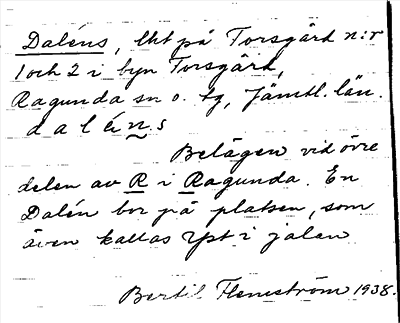 Daléns, lht på Torsgård n:r
1 och 2 i byn Torsgård,
Ragunda sn o. tg, Jämtl. län.
dalé́n.s
Belägen vid övre
delen av R i Ragunda. En
Dalén bor på platsen, som
även kallas i jalan
Bertil Flemström 1938.